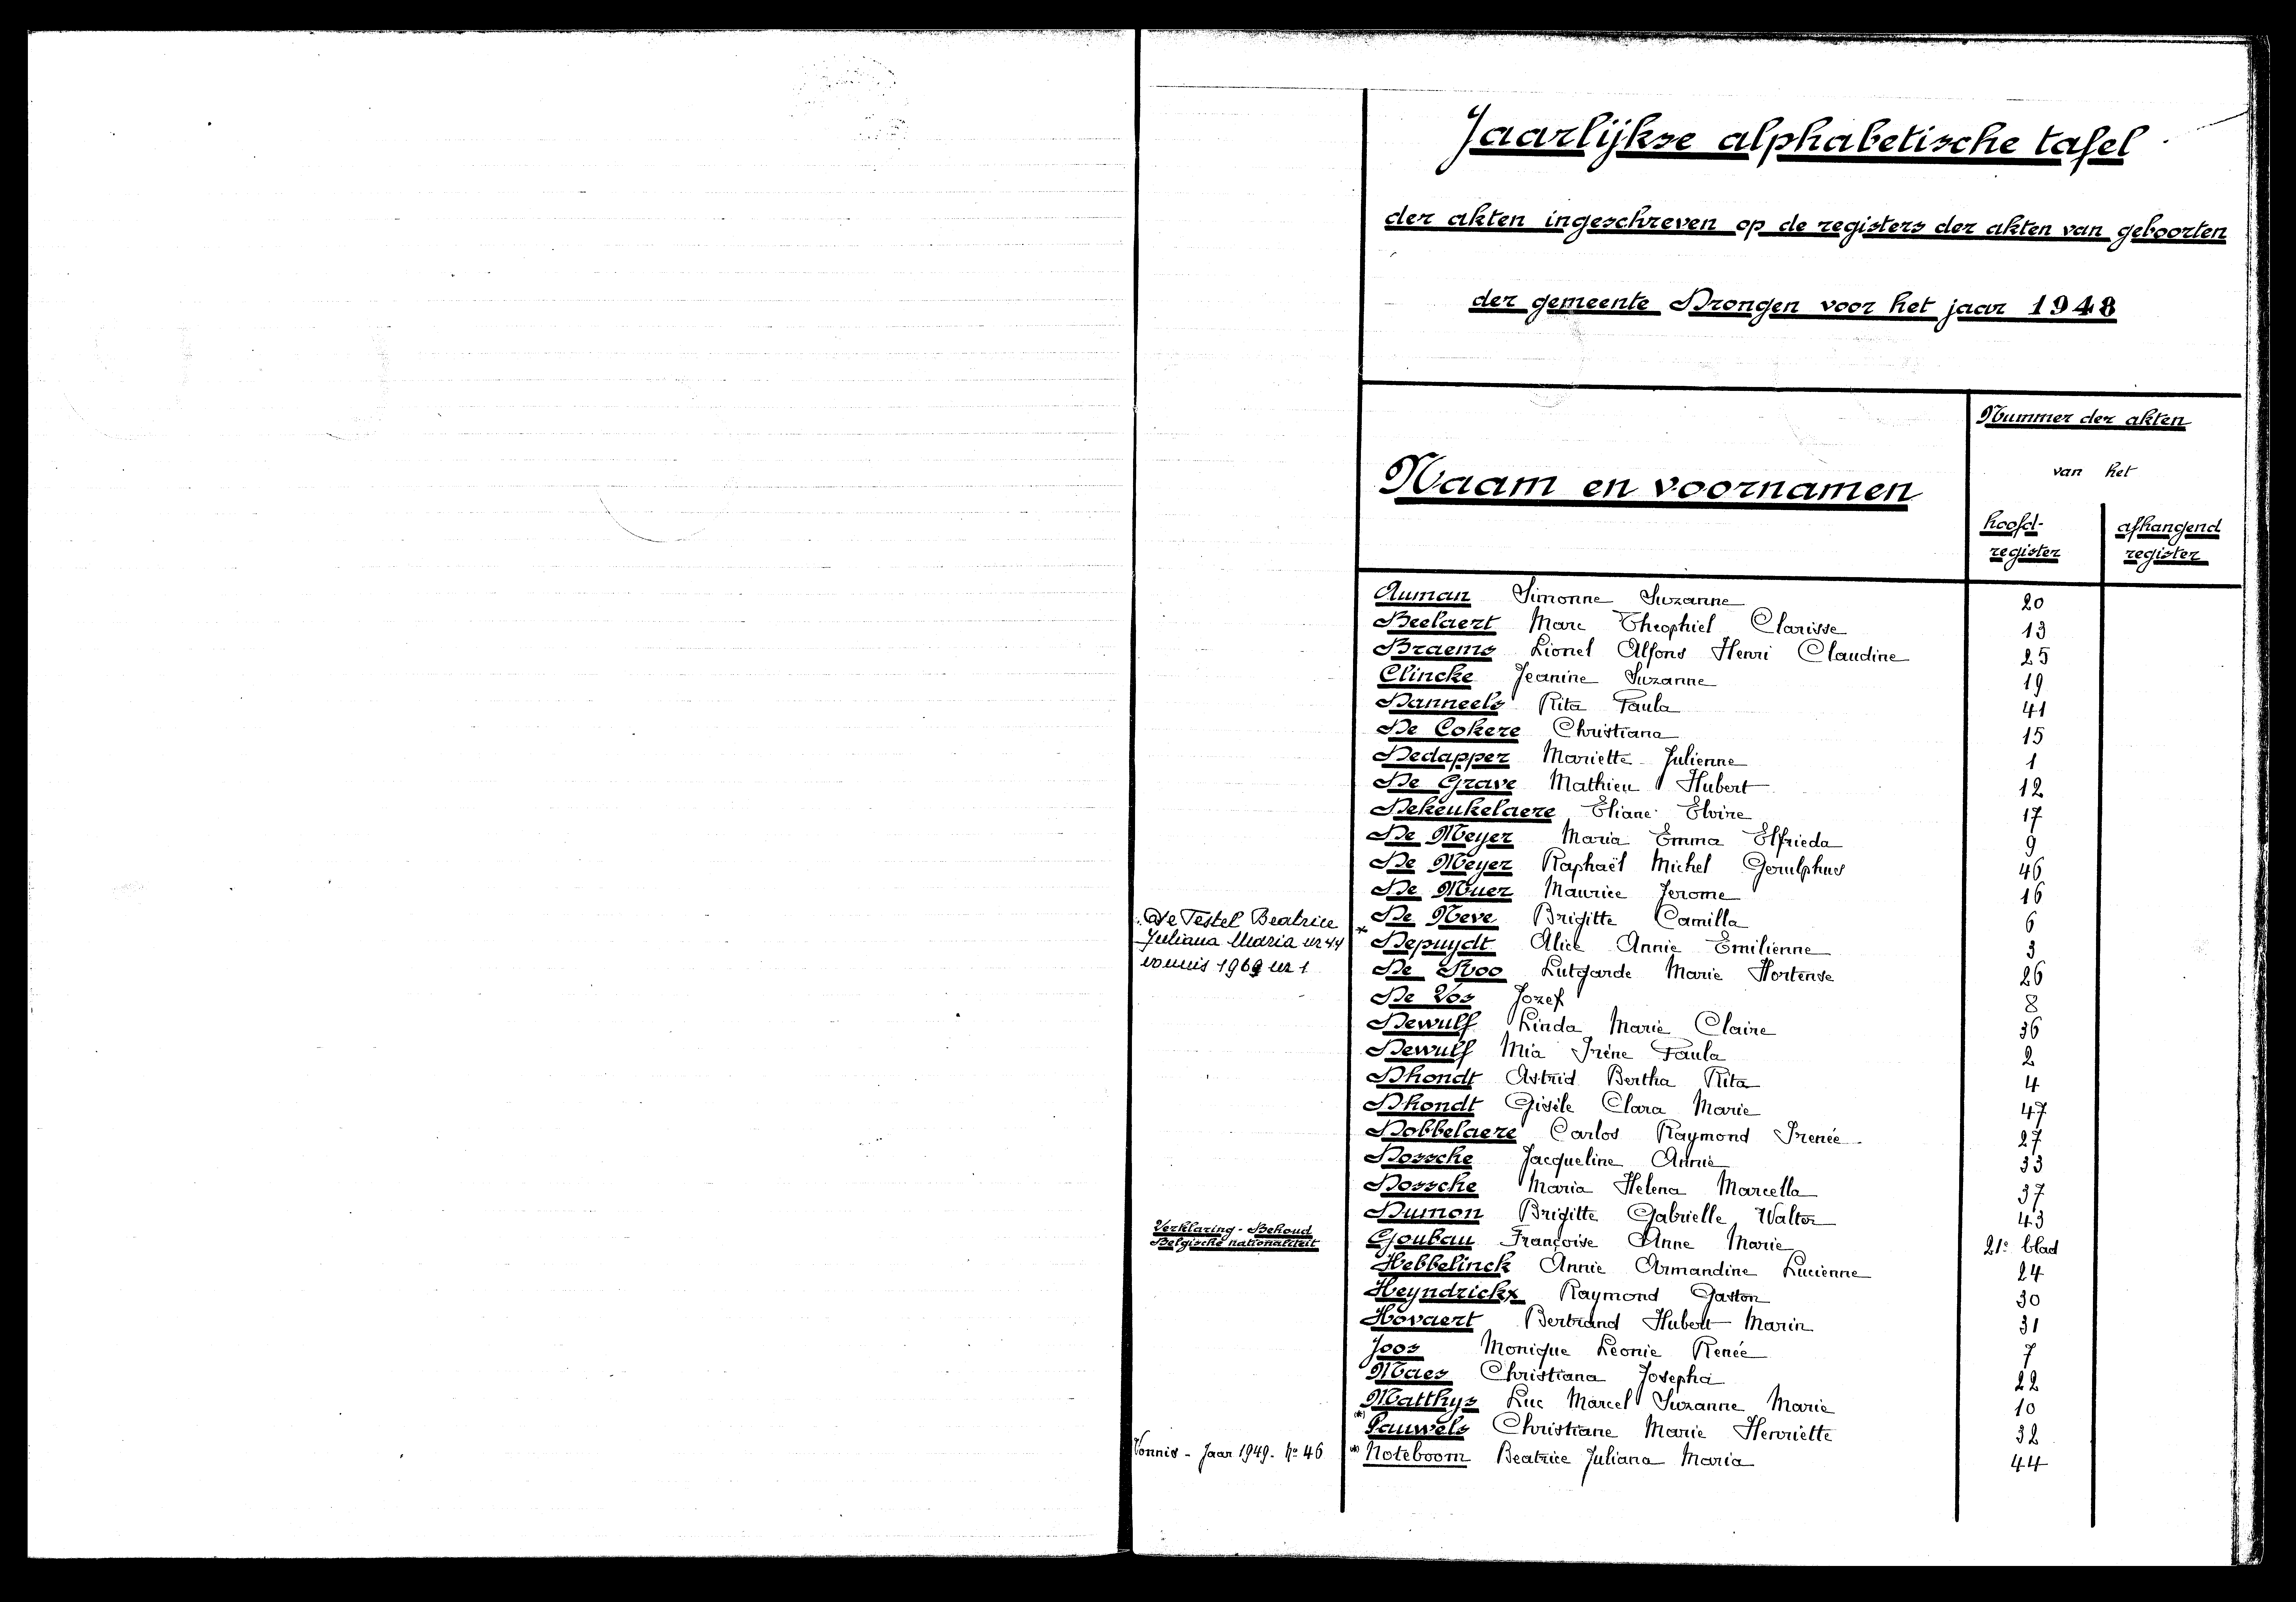 Jaarlijkse alphabetische tafel
der akten ingeschreven op de registers der akten van geboorten
der gemeente Drongen voor het jaar 1948
Nummer der akten
van het
Naam en voornamen
hoofd-
register
afhangend
register
Auman Simonne Suzanne 20
Beelaert Marc Theophiel Clarisse 13
Braems Lionel Alfons Henri Claudine 25
Clincke Jeanine Suzanne 19
Danneels Rita Paula 41
De Cokere Christiana 15
Dedapper Mariette Julienne 1
De Grave Mathieu Hubert 12
Dekeukelaere Eliane Elvire 17
De Meyer Maria Emma Elfrieda 9
De Meyer Raphaël Michel Gerulphus 46
De Muer Maurice Jerome 16
De Testel Beatrice
Juliana Maria nr 44
vonnis 1969 nr 1
De Neve Brigitte Camilla 6
* Depuydt Alice Annie Emilienne 3
De Roo Lutgarde Marie Hortense 26
De Vos Jozef 8
Dewulf Linda Marie Claire 36
Dewulf Mia Irène Paula 2
Dhondt Astrid Bertha Rita 4
Dhondt Gisèle Clara Marie 47
Dobbelaere Carlos Raymond Irenée 27
Dossche Jacqueline Annie 33
Dossche Maria Helena Marcella 37
Dumon Brigitte Gabrielle Walter 43
Verklaring - Behoud
Belgische nationaliteit
Goubau Françoise Anne Marie 21e blad
Hebbelinck Annie Armandine Lucienne 24
Heyndrickx Raymond Gaston 30
Hovaert Bertrand Hubert Marin 31
Joos Monique Leonie Renée 7
Maes Christiana Josepha 22
Matthys Luc Marcel Suzanne Marie 10
(*) Pauwels Christiane Marie Henriette 32
Vonnis - Jaar 1949 - No 46
(*) Noteboom Beatrice Juliana Maria 44